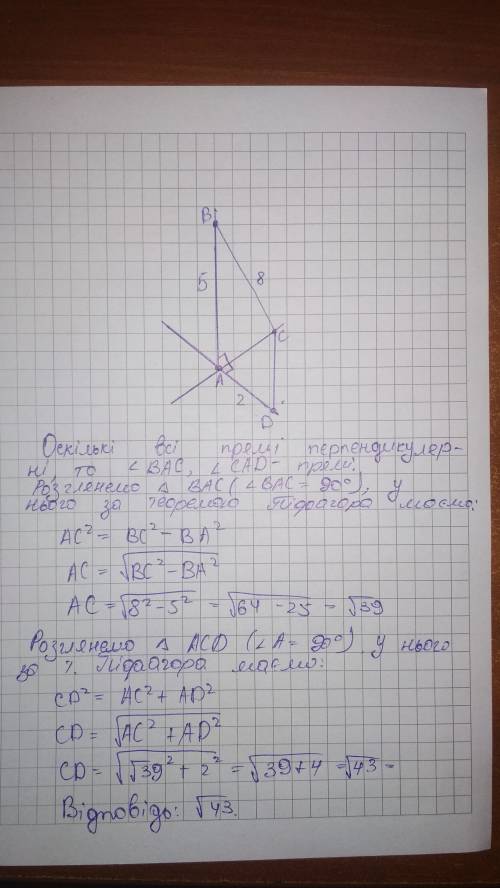 B
5
8
C
A
2
D
Оскількі всі прямі перпендикуляр-
ні то ∠BAC, ∠CAD - прямі.
Розглянемо Δ BAC (∠BAC = 90°), у
нього за теоремою Піфагора маємо:
AC² = BC² - BA²
AC = √BC² - BA²
AC = √8² - 5² = √64 - 25 = √39
Розглянемо Δ ACD (∠A = 90°) у нього
за т. Піфагора маємо:
CD² = AC² + AD²
CD = √AC² + AD²
CD = √√39² + 2² = √39 + 4 = √43 -
Відповідь: √43.